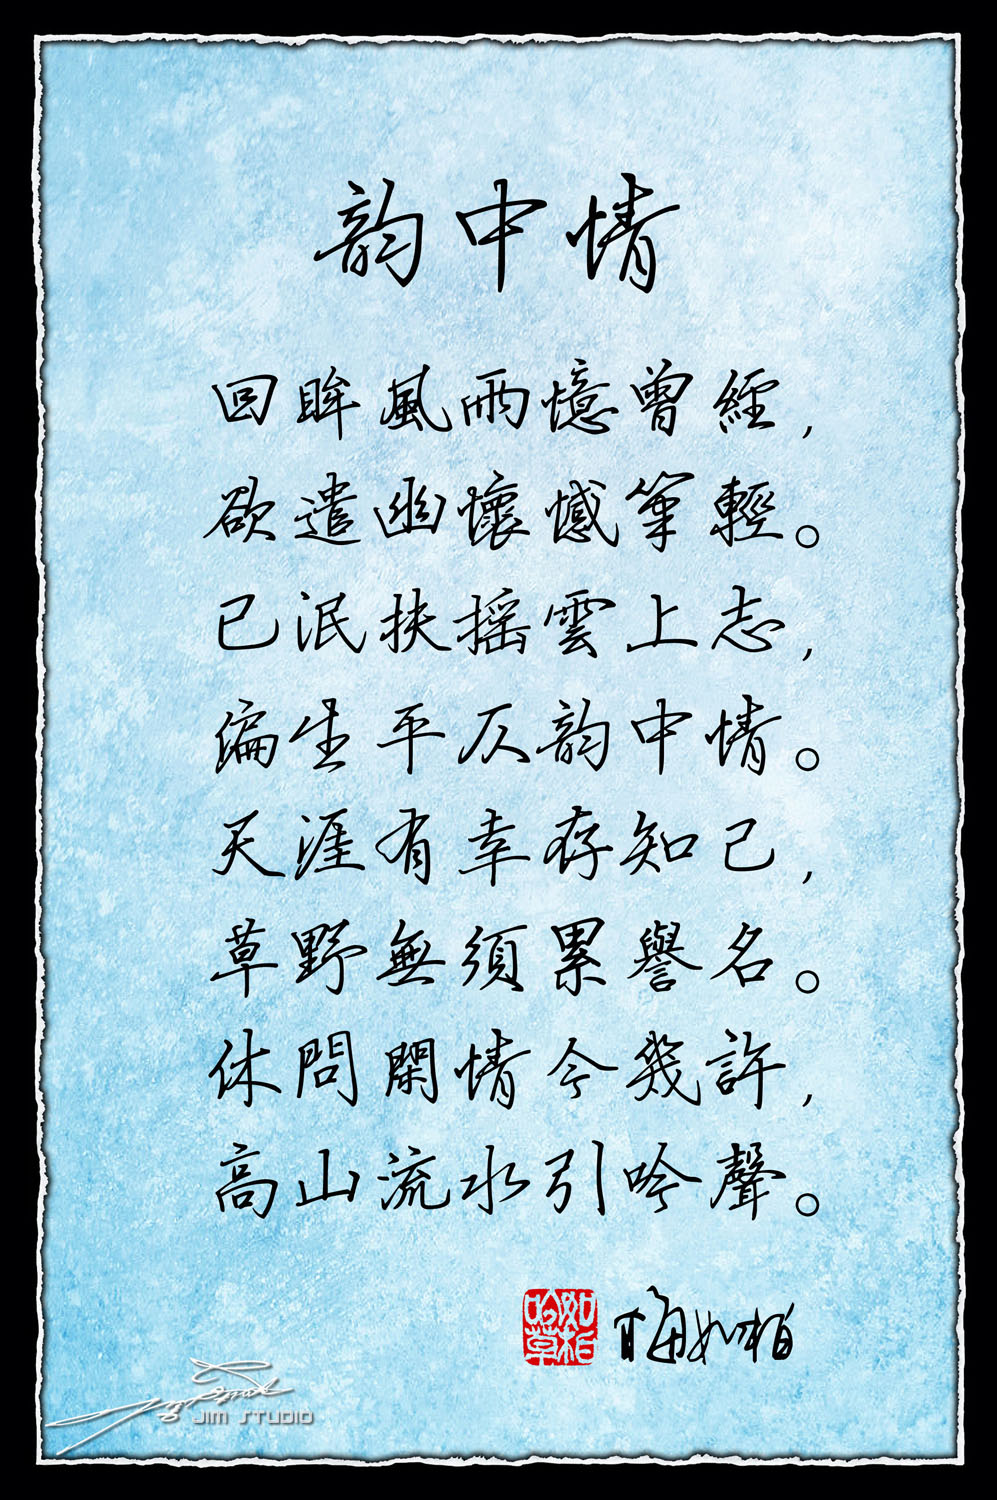 韵中情
回眸風雨憶曾經，
欲遣幽懷憾筆輕。
已泯扶摇雲上志，
偏生平仄韵中情。
天涯有幸存知己，
草野無須累譽名。
休問閑情今幾許，
高山流水引吟聲。
如柏吟草
梅如柏
JIM STUDIO